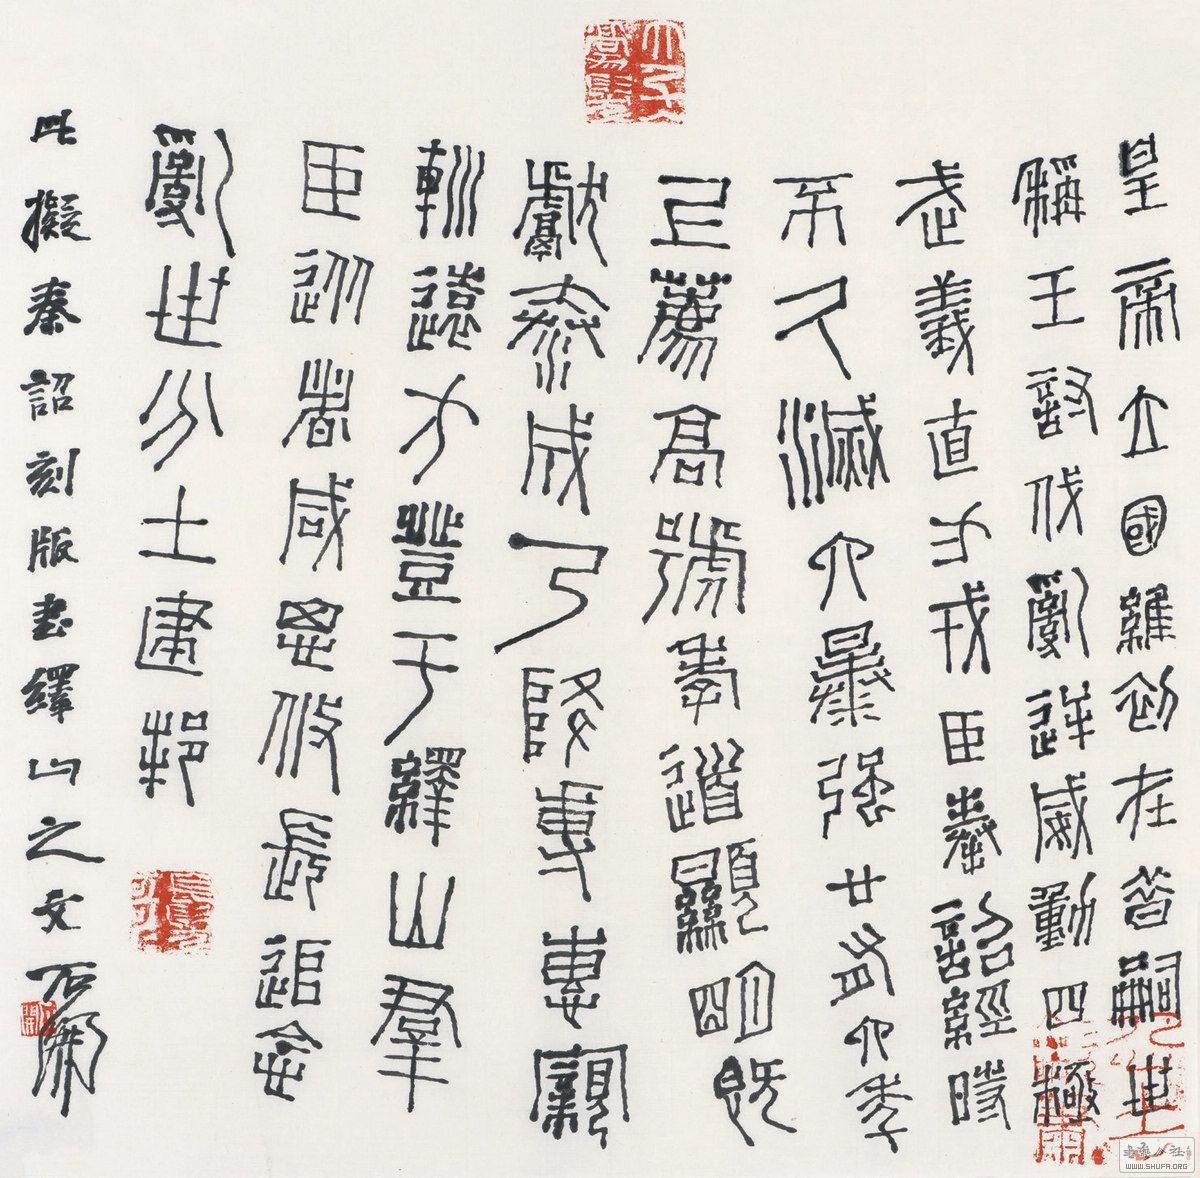 皇帝立國維初在昔嗣世
稱王討伐亂逆威動四極
武義直方戎臣奉詔經時
不久滅六暴強廿有六年
上薦高號孝道顯明既
獻泰成乃降專惠寴
巡遠方登于繹山羣
臣從者咸思攸長追念
亂世分土建邦
此擬秦詔刻版書繹山之文石開
WWW.SHUFA.ORG